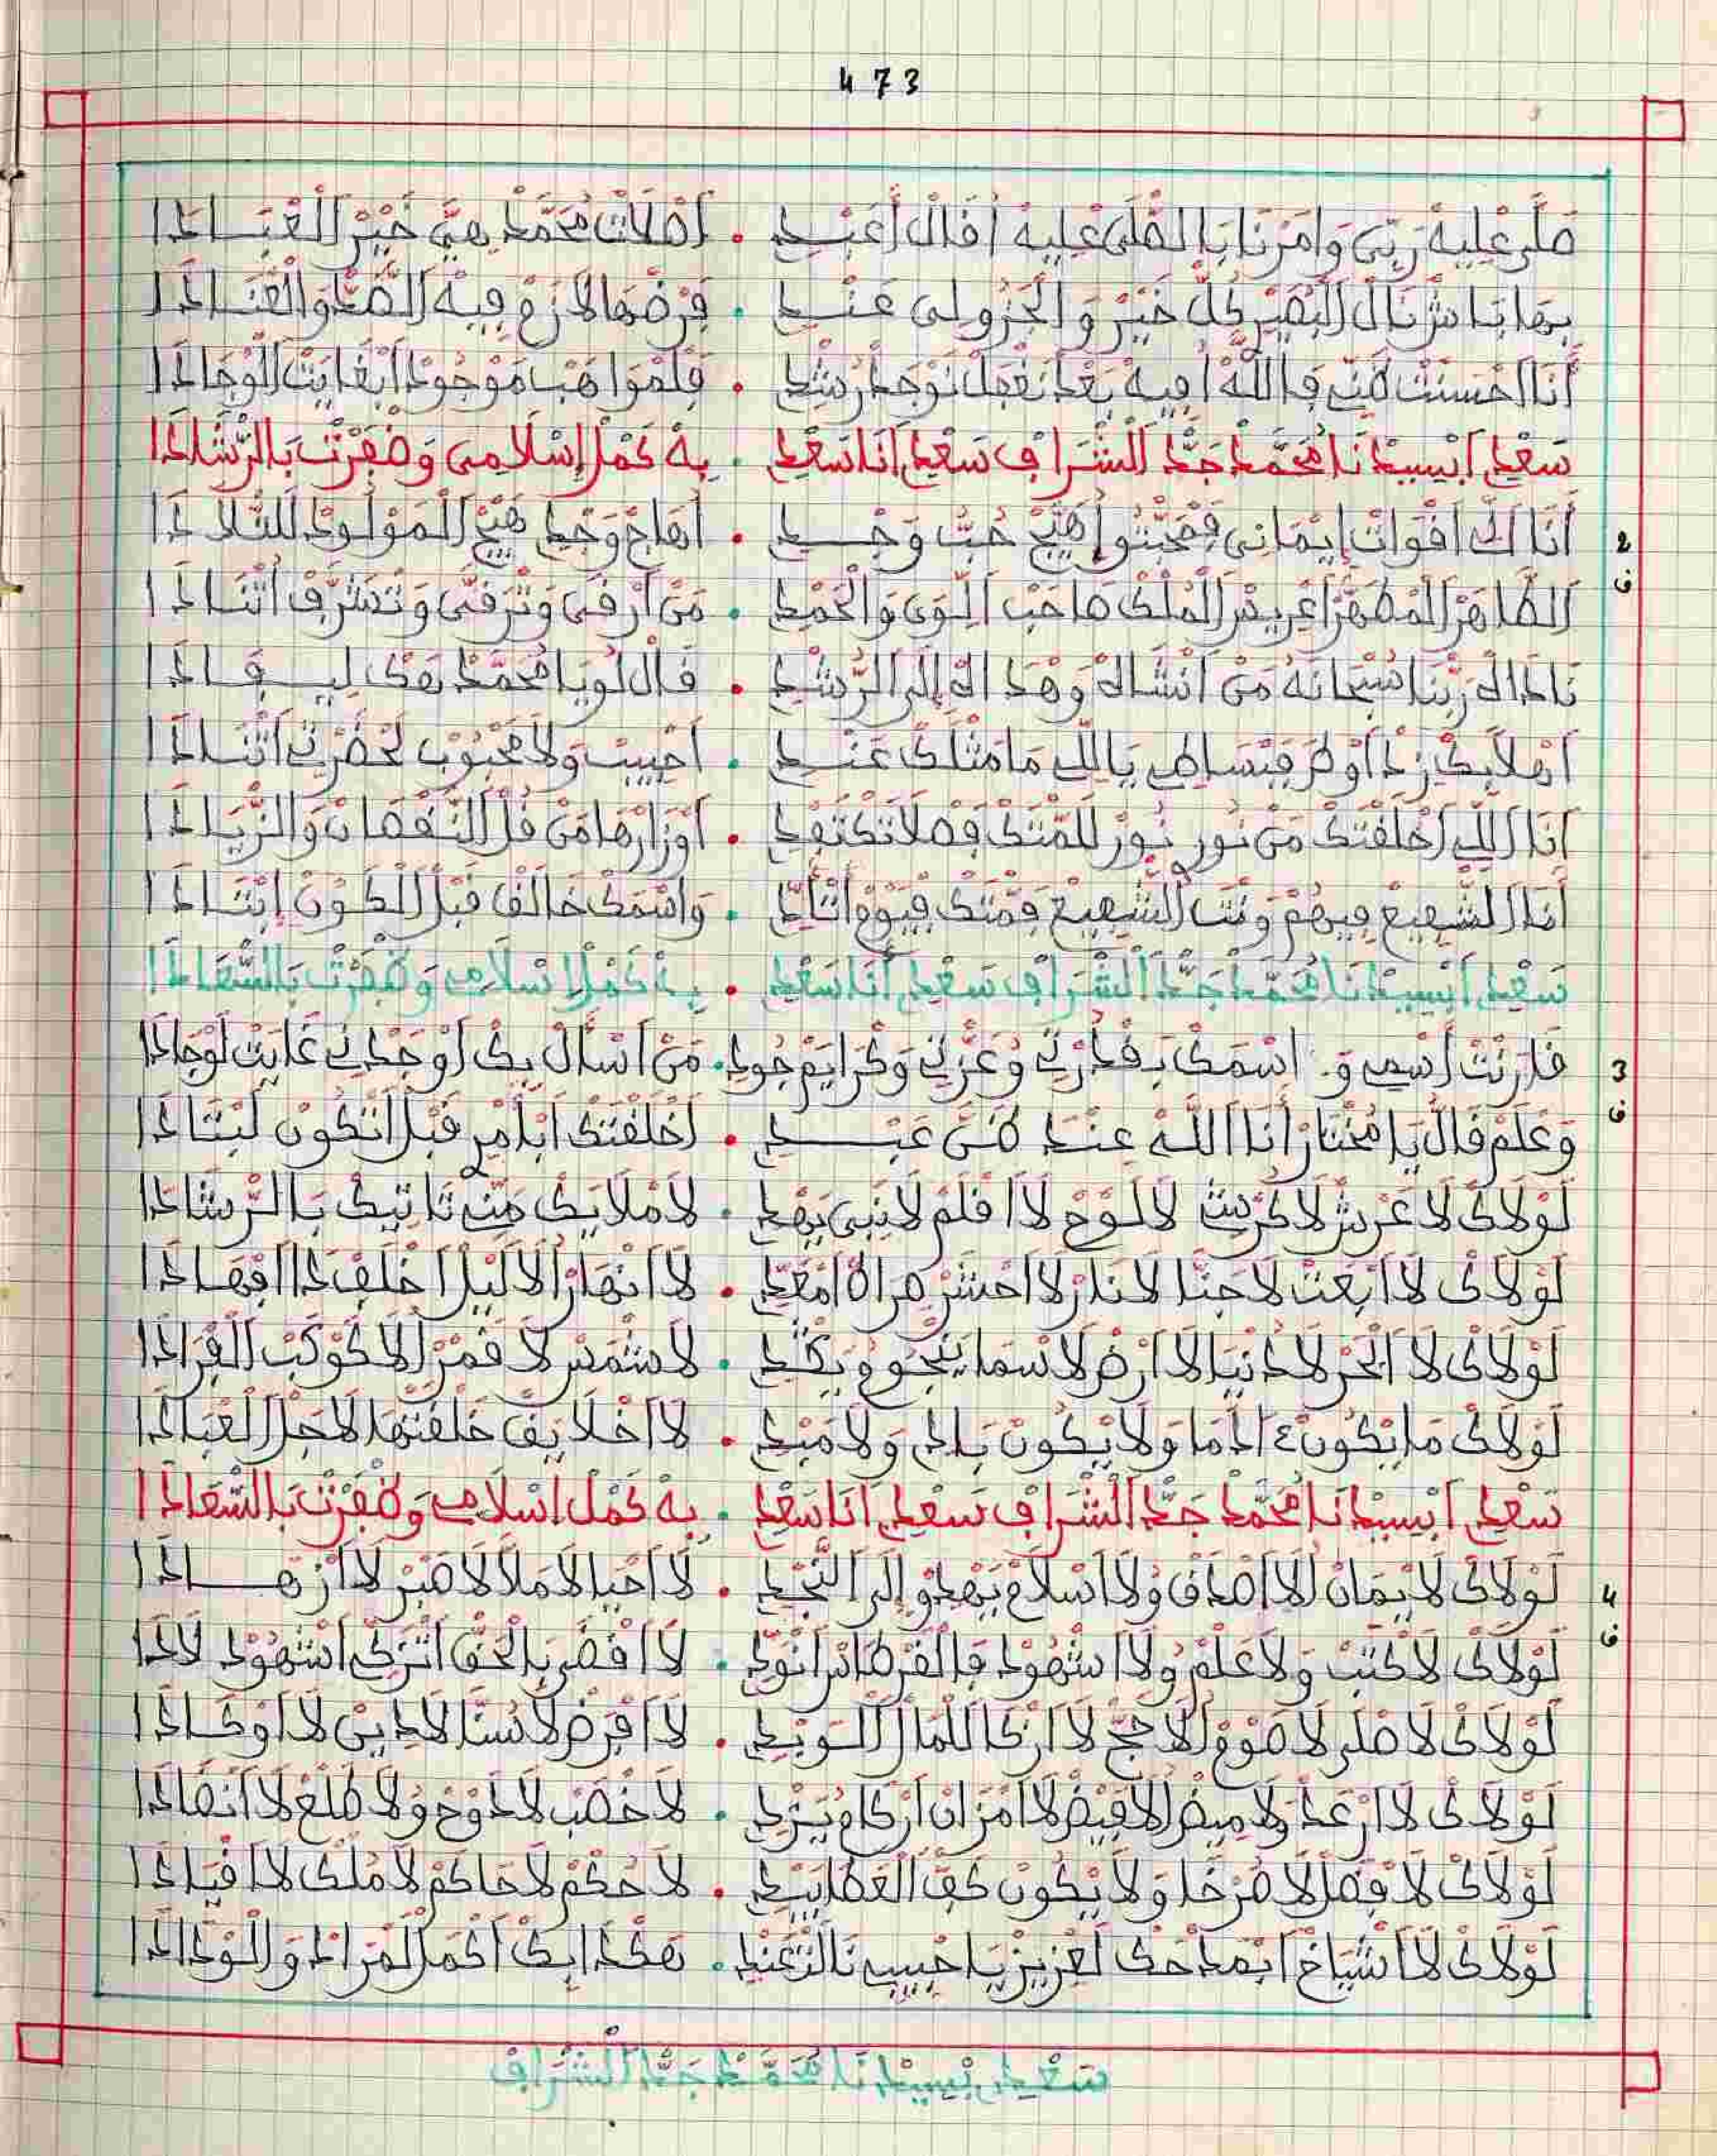 473
صَلَّى عْلِيهْ رَبِّي وَامَرْنَا بَالصّْلَى عْلِيهْ اُقَالْ أَعَبْدِي . اصْلَاتْ مُحَمَّدْ هِيَّ خَيْرْ الْعْبَادَا
بِهَا يَا مَرْ نَالْ الْبُصَيْرْ كُلّْ خَيْرْ وَالْجَزُولِي عَنْدِي . فَرْضْهَا لَازَمْ فِيهْ الصَّحّْ وَالْعْنَادَا
أَنَا احْسَنْتْ ظَنِّي فَاللَّهْ اُفِيهْ بَعْدْ نَعْمَلْ نَوْجَدْ رُشْدِي . فَلْمْوَاهَبْ مَوْجُودْ ابْغَايْتْ الْوْجَادَا
سَعْدِي ابْسِيدْنَا مُحَمَّدْ جَدّْ الشّْرَافْ سَعْدِي أَنَا سَعْدِي . بِهْ كْمَلْ إِسْلَامِي وَظْفَرْتْ بَالرّْشَادَا
2 أَنَا اكّْ اقْوَاتْ إِيمَانِي فَمْحَبّْتُو اُهَيَّجْ حُبّْ وَجْدِي . اُهَاجْ وَجْدِي هَيَّجْ الْمَوْلُودْ لَلتْلَادَا
ف الطَّاهَرْ الْمْطَهَّرْ اعْرِيسْ الْمُلْكْ صَاحَبْ الْوَى وَالْحَمْدِ . مَنْ ارْقَى وَتْرَقَّى وَتْشَرَّفْ اتْنَادَا
نَادَاهْ رَبّْنَا سُبْحَانَهُ مَنْ أَنْشَاهْ وَهْدَاهْ إِلَى الرُّشْدِ . قَالْ لُو يَا مُحَمَّدْ بَكْ لِيــقَادَا
اهْلَا بِكْ زِدْ اُوطَى فَبْسَاطِي يَا لِّي مَا مَثْلَكْ عَنْدِي . احْبِيبْ وَلَا مَحْبُوبْ لْحَضْرْتِي اتْنَادَا
أَنَا الِّي اخْلَقْتَكْ مَنْ نُورِي نُورْ لَامّْتَكْ فَضْلَا تَكْتَفْدِي . اُوزَارْهَا مَنْ فَلْ النَّقْصَانْ وَالزّْيَادَا
أَنَا الشّْفِيعْ فِيهُمْ وَنْتَ الشّْفِيعْ فَمّْتَكْ فَيُومْ اتْنَادِي . وَاسْمَكْ خَالَفْ قَبْلْ الْكُونْ إِبْتَادَا
سَعْدِي ابْسِيدْنَا مُحَمَّدْ جَدّْ الشّْرَافْ سَعْدِي أَنَا سَعْدِي . بِهْ كْمَلْ إِسْلَامِي وَظْفَرْتْ بَالسّْعَادَا
3 قَارَنْتْ اسْمِي وَ اسْمَكْ بَقُدْرْتِي وُعَزّْتِي وَكْرَايَمْ جُودِي . مَنْ اسْأَلْ بِكْ اُوجَدْنِي غَايْتْ لَوْجَادَا
ف وَعْلَمْ قَالْ يَا مُخْتَارْ أَنَا اللَّهْ عَنْدْ ظَنّْ عَبْدِي . اخْلَقْتَكْ ابْأَمْرِي قَبْلْ اتْكُونْ لَبْتَادَا
لَوْلَاكْ لَا عَرْشْ لَا كُرْسِي لَا لَوْحْ لَا اقْلَمْ لَا نَبِي يَهْدِي . لَا مْلَايَكْ مَنِّي تَاتِيكْ بَالرّْشَادَا
لَوْلَاكْ لَا ابْعَتْ لَا جَنَّا لَا نَارْ لَا احْشَرْ صْرَاطْ امْعَدِّي . لَا انْهَارْ اُلَا لَيْلْ اخْلَفْ دَا افْهَادَا
لَوْلَاكْ لَا ابْحَرْ لَا دُنْيَا لَا ارْضْ لَا سْمَا بَنْجُومْ يَكْدِي . لَا شَمْسْ لَا قْمَرْ اُلَا كَوْكَبْ الْفْرَادَا
لَوْلَاكْ مَا ايْكُونْ ءَادَمَا وَلَا يْكُونْ بَادِي وَلَا مَبْدِي . لَا اخْلَايَقْ خْلَقْتْهَا لَاجْلْ الْعْبَادَا
سَعْدِي ابْسِيدْنَا مُحَمَّدْ جَدّْ الشّْرَافْ سَعْدِي أَنَا سَعْدِي . بِهْ كْمَلْ إِسْلَامِي وَظْفَرْتْ بَالسّْعَادَا
4 لَوْلَاكْ لَا يْمَانْ لَا اصْدَفْ وُلَا اسْلَامْ يَهْدُو إِلَى النَّجْدِ . لَا احْيَا لَا مْلَا لَا صْبَرْ لَا ازْهَادَا
ف لَوْلَاكْ لَا كْتَبْ وَلَا عَلْمْ وُلَا اشْهُودْ فَالْقَرْطَاسْ انْوَدِّي . لَا اقْضَى بَالْحَقّْ اتْزَكِّي اشْهُودْ لَادَا
لَوْلَاكْ لَا صْلَى لَا صَوْمْ اُلَا حَجّْ لَا ازْكَا لَلْمَالْ اللّْوَبْدِ . لَا افْرَضْ لَا سُنَّا لَا دِينْ لَا اوْكَادَا
لَوْلَاكْ لَا ارْعَدْ وَلَا مِيضْ اُلَا فِيضْ لَا امْزَانْ ارْكَامْ يَزْدِي . لَا خْصَبْ لَا دَوْحْ وُلَا طَلْعْ لَا انْضَادَا
لَوْلَاكْ لَا فْضَلْ لَا مْرَخَّا وَلَا يْكُونْ كَفّْ الْعْطَا يَبْدِي . لَا حُكْمْ لَا حَاكَمْ لَا مُلْكْ لَا اقْيَادَا
لَوْلَاكْ لَا اشْيَاخْ ابْمَدْحَكْ لَعْزِيزْ يَا حْبِيبِي تَالتْغَنْدِي . هَكْدَا بِكْ اكْمَلْ لَمْرَادْ وَالْوْدَادَا
سَعْدِي بْسِيدْنَا مُحَمَّدْ جَدّْ الشّْرَافْ